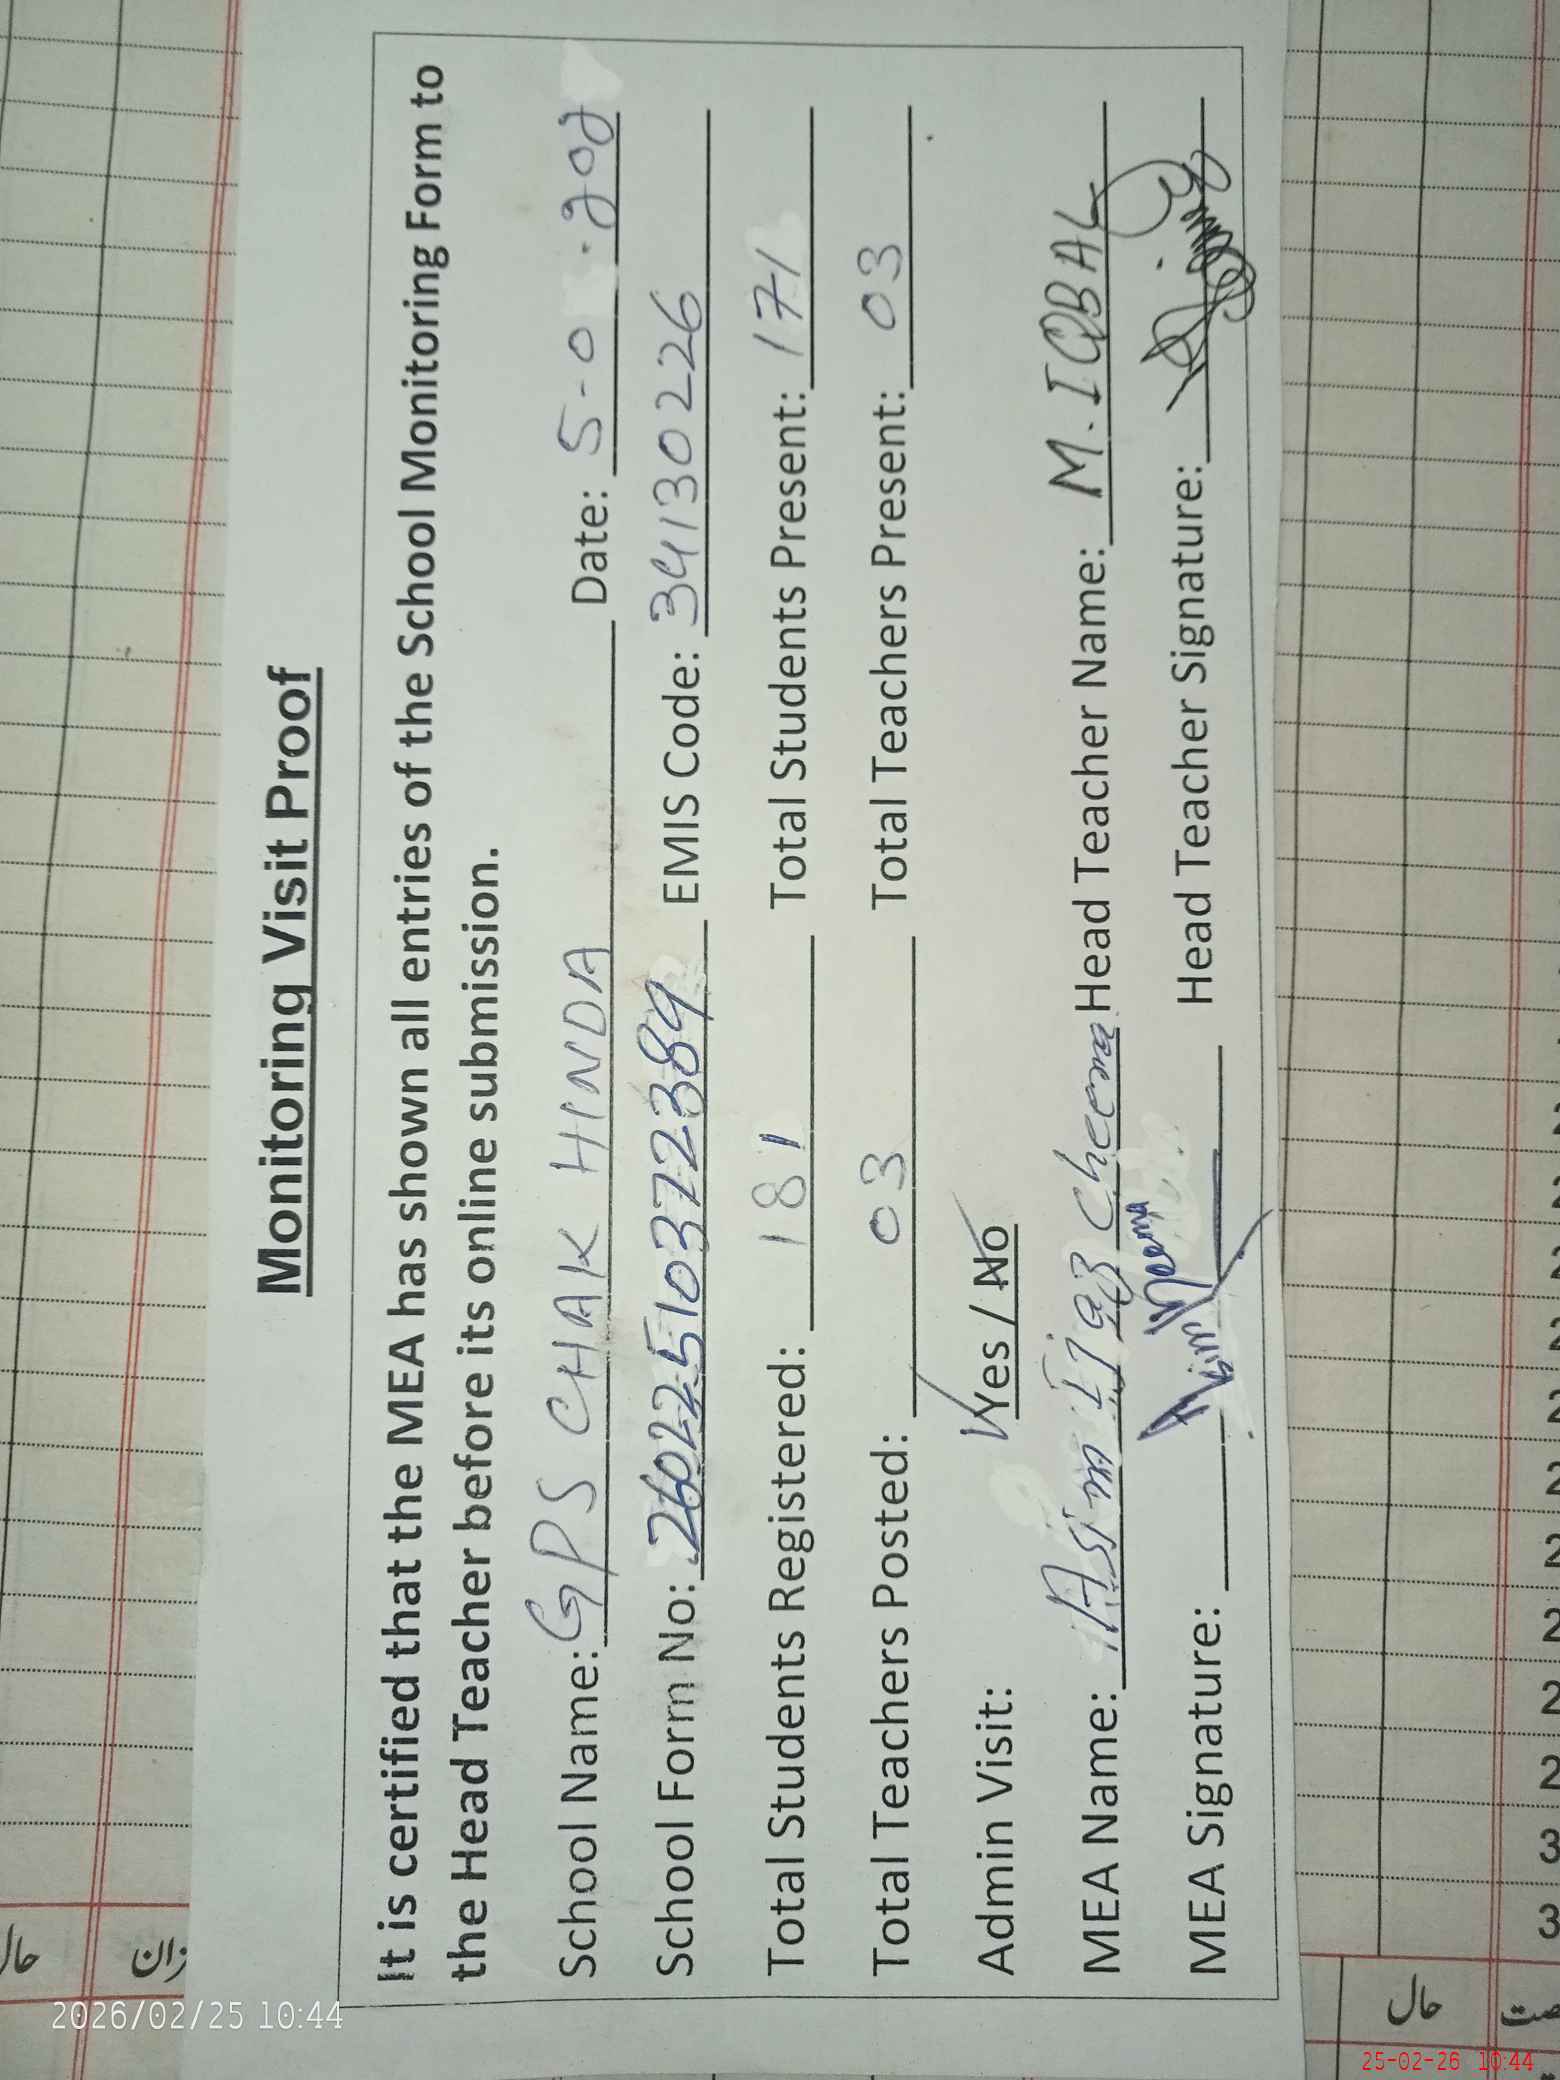 Monitoring Visit Proof
It is certified that the MEA has shown all entries of the School Monitoring Form to
the Head Teacher before its online submission.
School Name: GPS CHAK HINDA Date: 5-0 . 202
School Form No: 26022510372389 EMIS Code: 34130226
Total Students Registered: 181 Total Students Present: 171
Total Teachers Posted: 03 Total Teachers Present: 03
Admin Visit: Yes / No
MEA Name: Asim Ijaz Cheema Head Teacher Name: M. IQBAL
MEA Signature: Head Teacher Signature:
حال
حال
2026/02/25 10:44
25-02-26 10:44
2
2
2
2
2
2
2
3
3